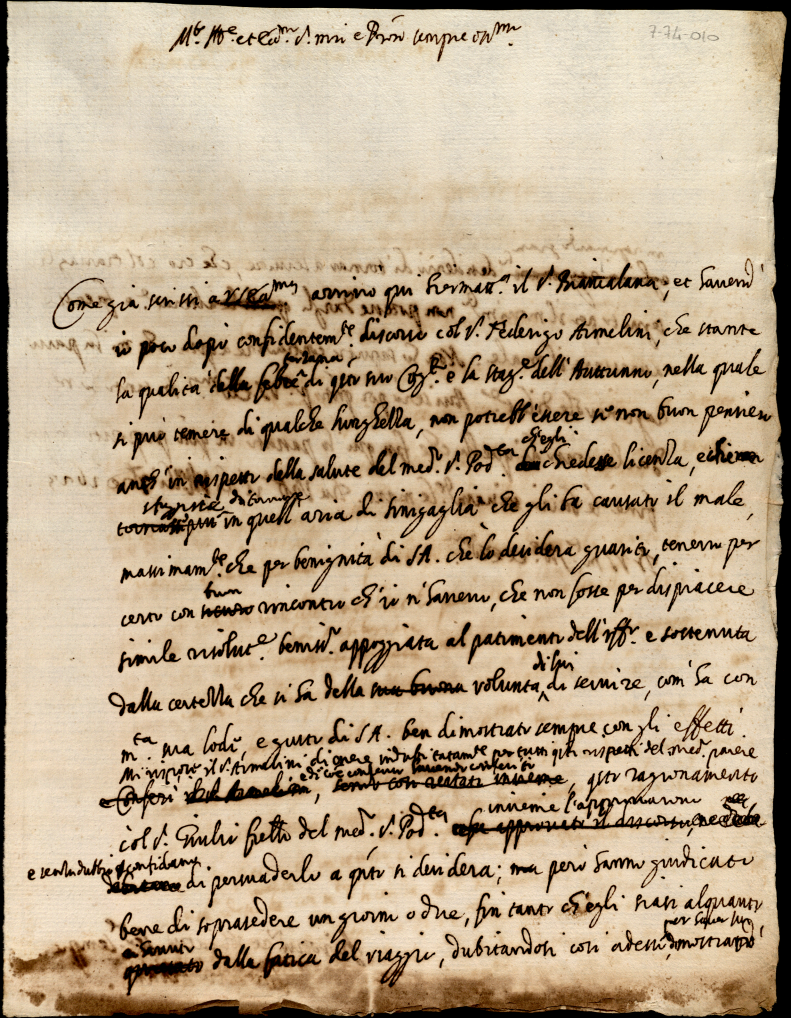 7-74-010
sempre
Come già scrissi a arrivò qui hiermatt.ª il s.r Biancalana, et havend'
io poco dopo confidentem.te discorso col s.r Federigo Armelini, che stante
la qualità della febre di q.sto suo e la stag.e dell'Auttunno, nella quale
si può temere di qualche lunghezza, non potrebb'essere se non buon pensiero
anch'in rispetto della salute del med.º s.r Pod.tà ch'egli chiedesse licenza, e
in quell'aria di Sinigaglia che gli ha causato il male,
massimam.te che per benignità di S.A. che lo desidera guarito, tenevo per
certo con buon rincontro ch'io n'havevo, che non fosse per dispiacere
simile risolut.e appoggiata al patimento dell' e sostenuta
dalla certezza che si ha della sua buona volontà di lui di servire, com'ha con
m.ta sua lode, e gusto di S.A. ben dimostrato sempre con gli effetti.
Mi rispose il s.r Armelini di per tutti q.sti rispetti del med.º parere
e conferì, q.sto ragionamento
col s.r Giulio fr̃ello del med.º s.r Pod.tà insieme l'approvarono
e confidano di persuaderlo a q.nto si desidera; ma però hanno giudicato
bene di soprasedere un giorno o due, fin tanto ch'egli siasi alquanto
dalla fatica del viaggio, dubitandosi così adesso